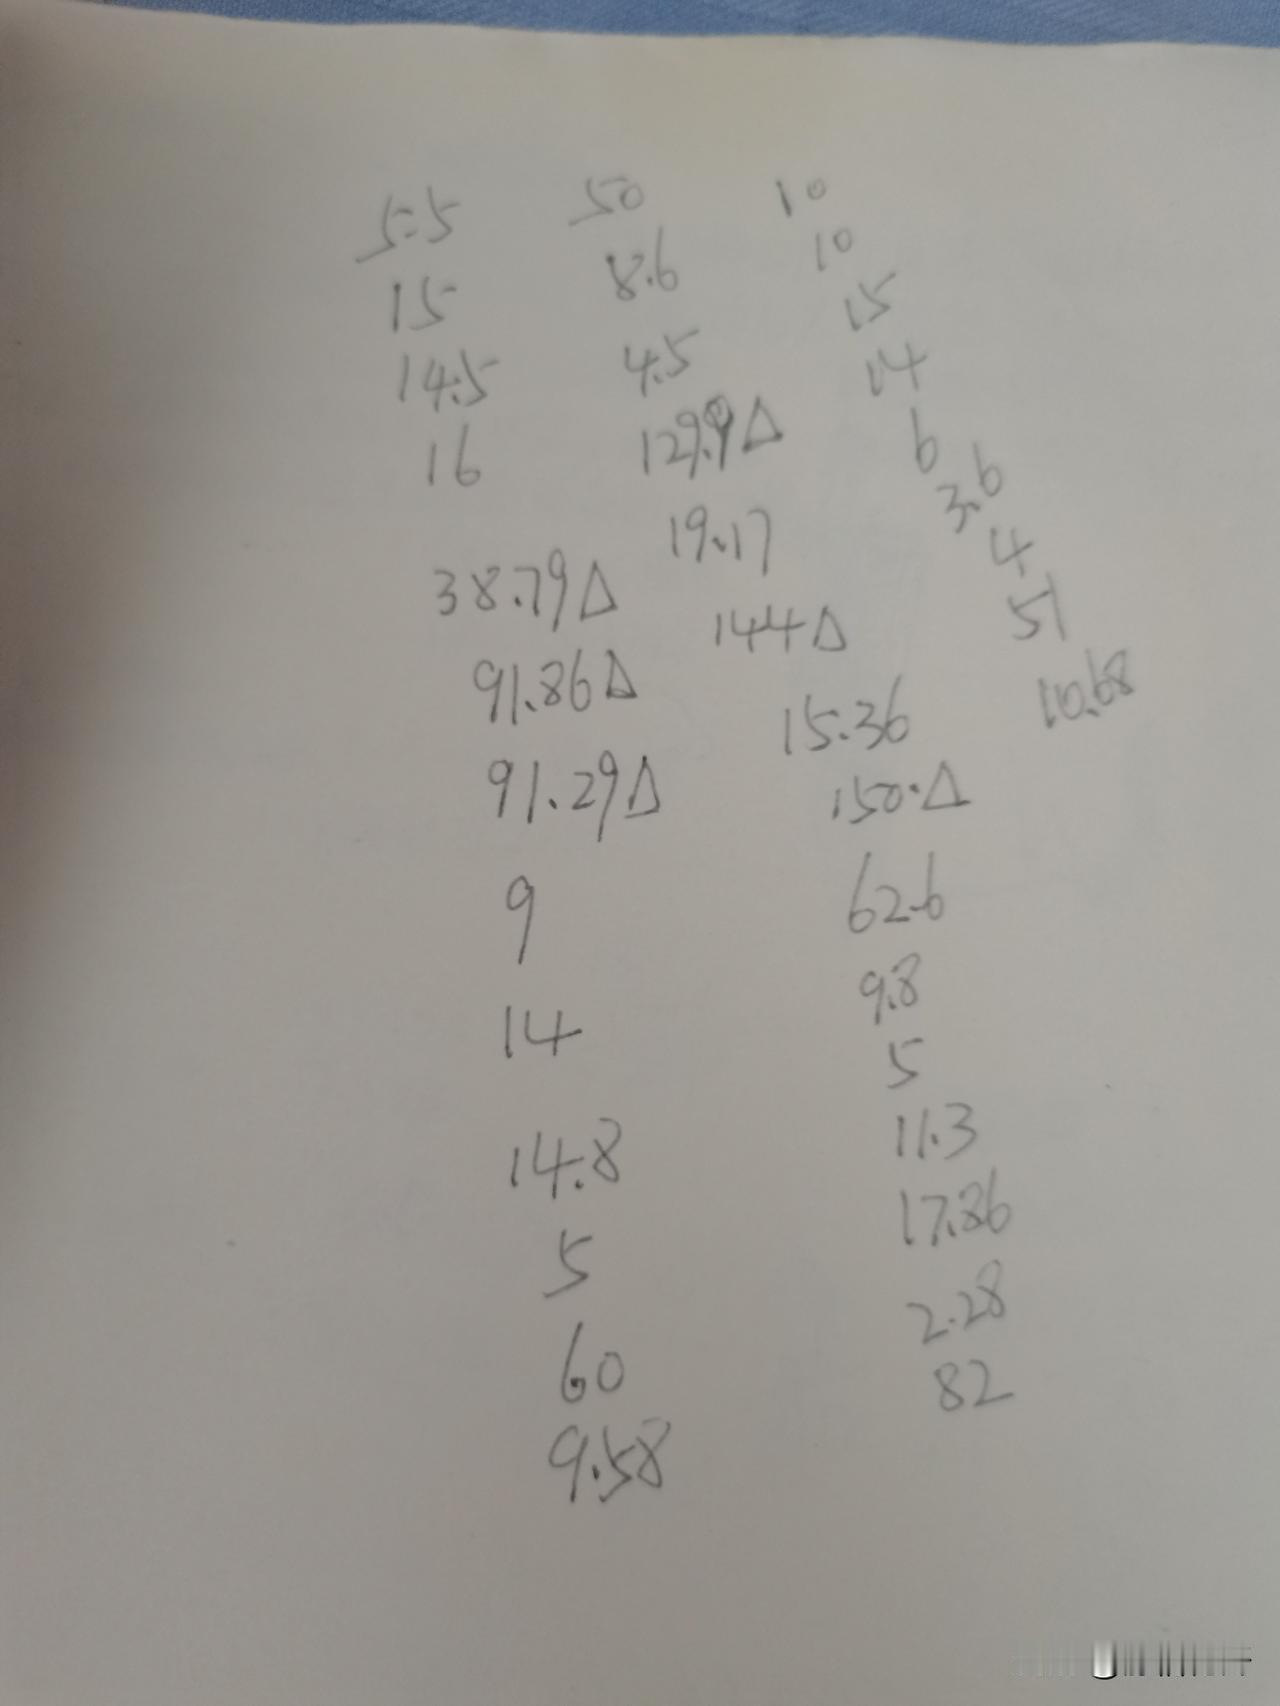 5.5
15
14.5
16
38.79△
91.86△
91.29△
9
14
14.8
5
60
9.58
50
8.6
4.5
129.9△
19.17
144△
15.36
150.△
62.6
9.8
5
11.3
17.86
2.28
82
10
10
15
14
6
3.6
4
51
10.68